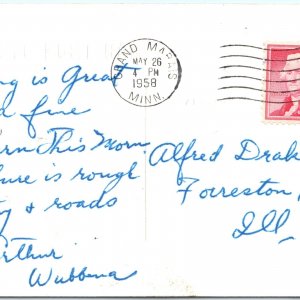 GRAND MARAIS
MAY 26
4 PM
1958
MINN.
ng is Great
d fine
rn This Morn
ure is rough
y & roads
rthur
Wubbena
Alfred Drak
Forreston,
Ill.